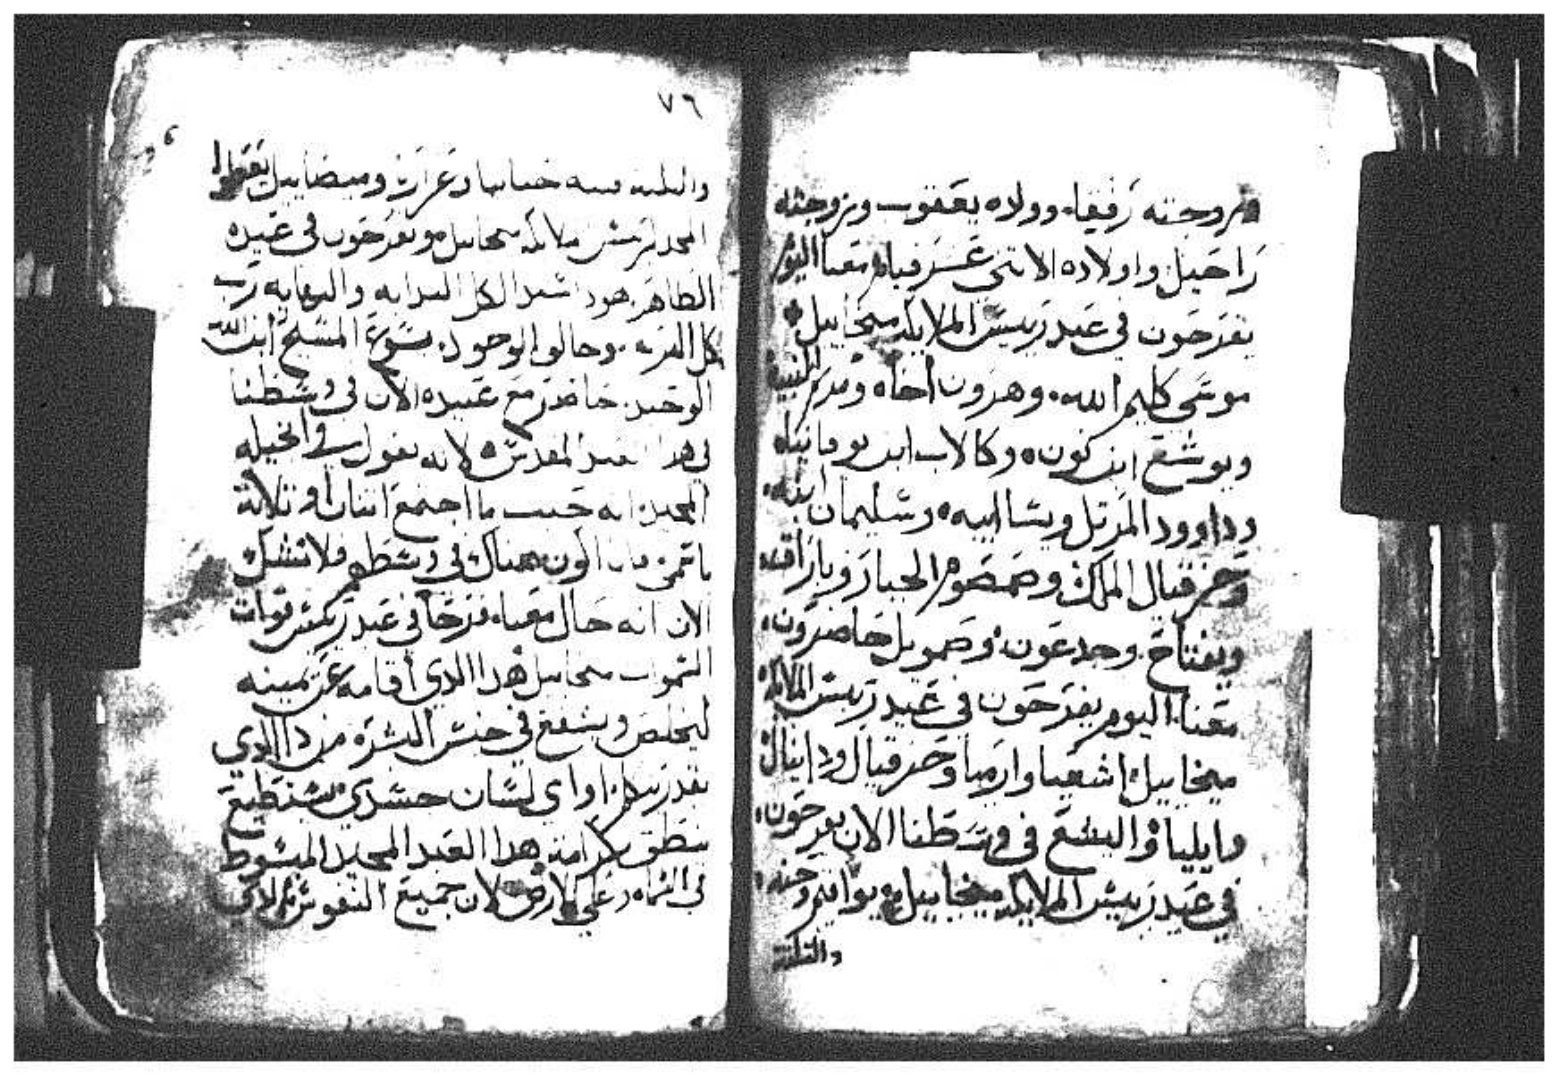 وزوجته رفيقا. وولاده يعقوب وزوجته
راحيل واولاده الاتني عشر قيام معنا اليوم
يفرحون في عيد رييس الملايكه ميخاييل
موسي كليم الله. وهرون اخاه ومريم النبيه
ويوشع ابن نون وكالاب ابن يوفانيا
وداوود المرتل ويسا ابيه وسليمان ابنه
وحزقيال الملك وصمصوم الجبار وباراق
ويفتاح. وجدعون وصمويل حاضرون
معنا اليوم يفرحون في عيد رييس الملايكه
ميخاييل اشعيا وارميا وحزقيال ودانيال
وايليا واليشع في وسطنا الان يفرحون
في عيد رييس الملايكه ميخاييل يواقيم وحنه
والتلته
٧٦
والتلته فتيه حنانيا وعزاريا وميصاييل يعطوا
المجد لرييس ملايكه ميخاييل ويفرحون في عيده
الطاهر هودا سيد الكل البدايه والنهايه رب
كل القوه. وخالق الوجود. يسوع المسيح ابن الله
الوحيد. حاضر مع عبيده الان في وسطنا
في هدا العيد المقدس لانه يقول في انجيله
المجيد انه حيث ما اجتمع اتنان او تلاتة
باسمي فانا اكون هناك في وسطهم فلا تشك
الان انه حال معنا. فرحا في عيد رييس قوات
السموات ميخاييل هدا الدي اقامه عن يمينه
ليخلص ويشفع في جنس البشر من دا الدي
يقدر يتكلم او اي لسان جسدي يستطيع
ينطق بكرامة هدا العيد المجيد المبسوط
في السماء وعلي الارض لان جميع النفوس